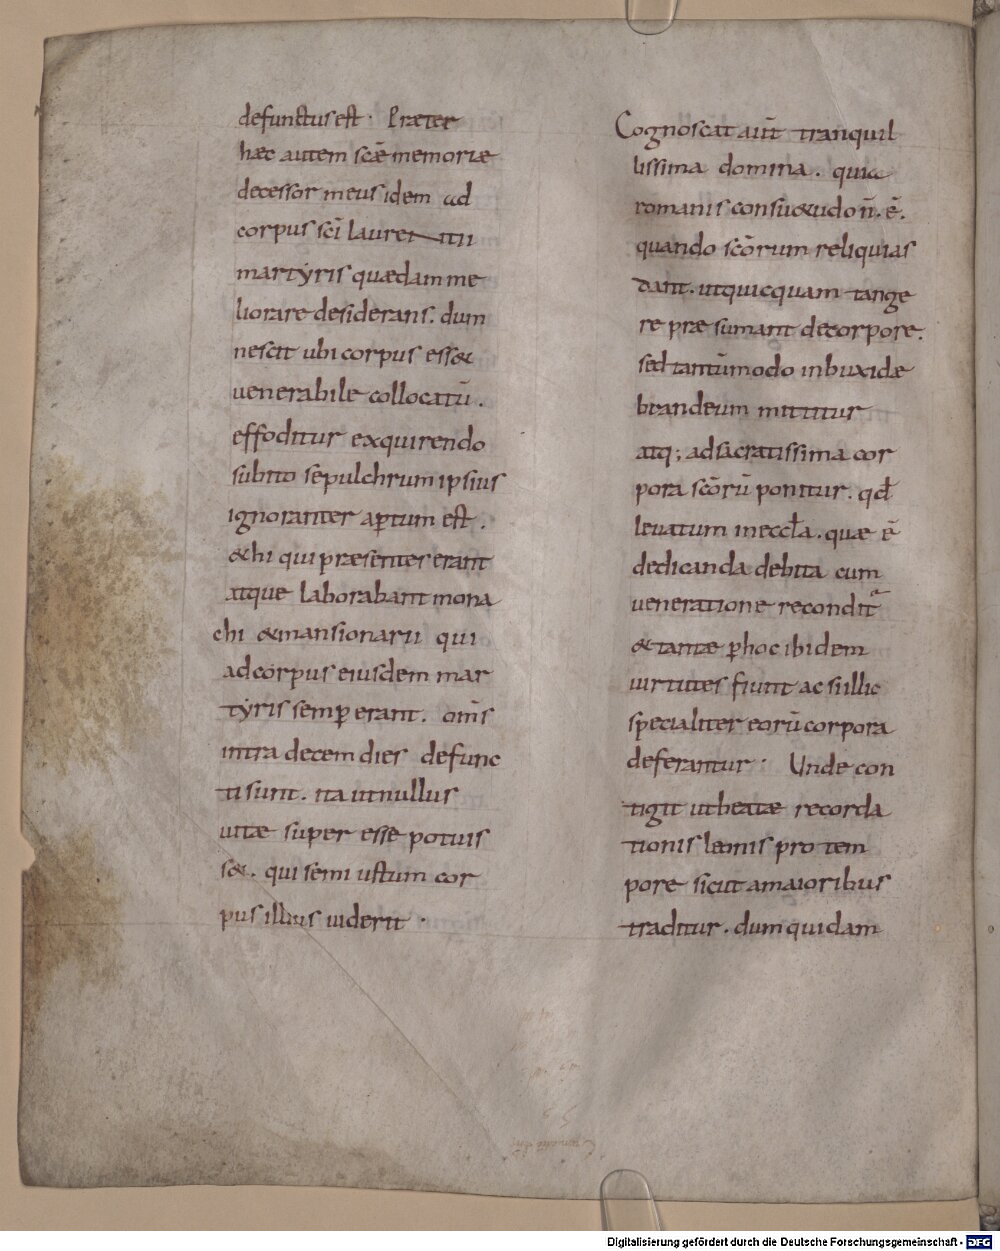 defunctus est · Praeter
haec autem scae memoriae
decessor meus idem ad
corpus sci laurentii
martyris quaedam me
liorare desiderans. dum
nescit ubi corpus ess&
uenerabile collocatū .
effoditur exquirendo
subito sepulchrum ipsius
ignoranter aptum est .
&hi qui praesenter erant
atque laborabant mona
chi &mansionarii qui
ad corpus eiusdem mar
tyris semp erant. oms
intra decem dies defunc
ti sunt. ita ut nullus
uitae super esse potuis
s&. qui semi ustum cor
pus illius uiderit ·
Cognoscat aut tranquil
lissima domina. quia
romanis consu&udo n̄. ē.
quando scōrum reliquias
dant. ut quicquam tange
re prae sumant decorpore.
sed tantūmodo inbuxidae
brandeum mittitur
atq; ad sacratissima cor
pora scōrū ponitur. qđ
leuatum ineccła. quae ē
dedicanda debita cum
ueneratione reconditᵃ
& tantae phoc ibidem
uirtutes fiunt ac si illic
specialiter eorū corpora
deferantur · Unde con
tigit ut beatae recorda
tionis leonis pro tem
pore sicut a maioribus
traditur. dum quidam
Digitalisierung gefördert durch die Deutsche Forschungsgemeinschaft - DFG